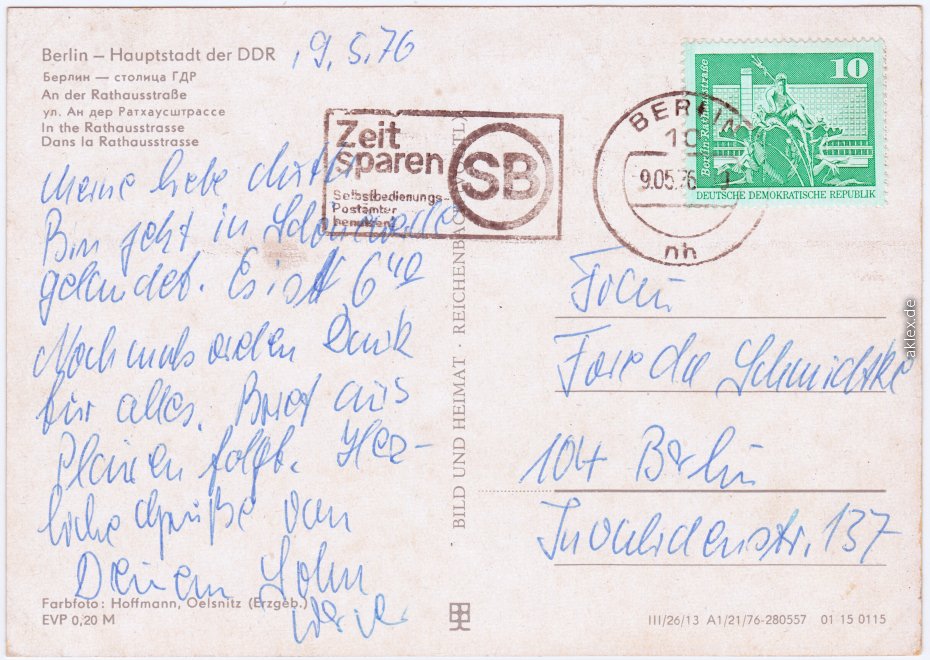 Berlin – Hauptstadt der DDR
Берлин — столица ГДР
An der Rathausstraße
ул. Ан дер Ратхаусштрассе
In the Rathausstrasse
Dans la Rathausstrasse
, 9. 5. 76
Meine liebe Mutti
Bin jetzt in Schöneweide
gelandet. Es ist 6 40
Nochmals vielen Dank
für alles. Brief aus
Plauen folgt. Herz-
liche Grüße von
Deinem Sohn
Zeit
sparen
SB
Selbstbedienungs-
Postämter
benutzen
BERLIN
9.05.76
nh
10
Berlin Rathausstraße
DEUTSCHE DEMOKRATISCHE REPUBLIK
Frau
Schmidtke
104 Berlin
Invalidenstr. 137
BILD UND HEIMAT · REICHENBACH
Farbfoto: Hoffmann, Oelsnitz (Erzgeb.)
EVP 0,20 M
III/26/13 A1/21/76-280557 01 15 0115
aklex.de